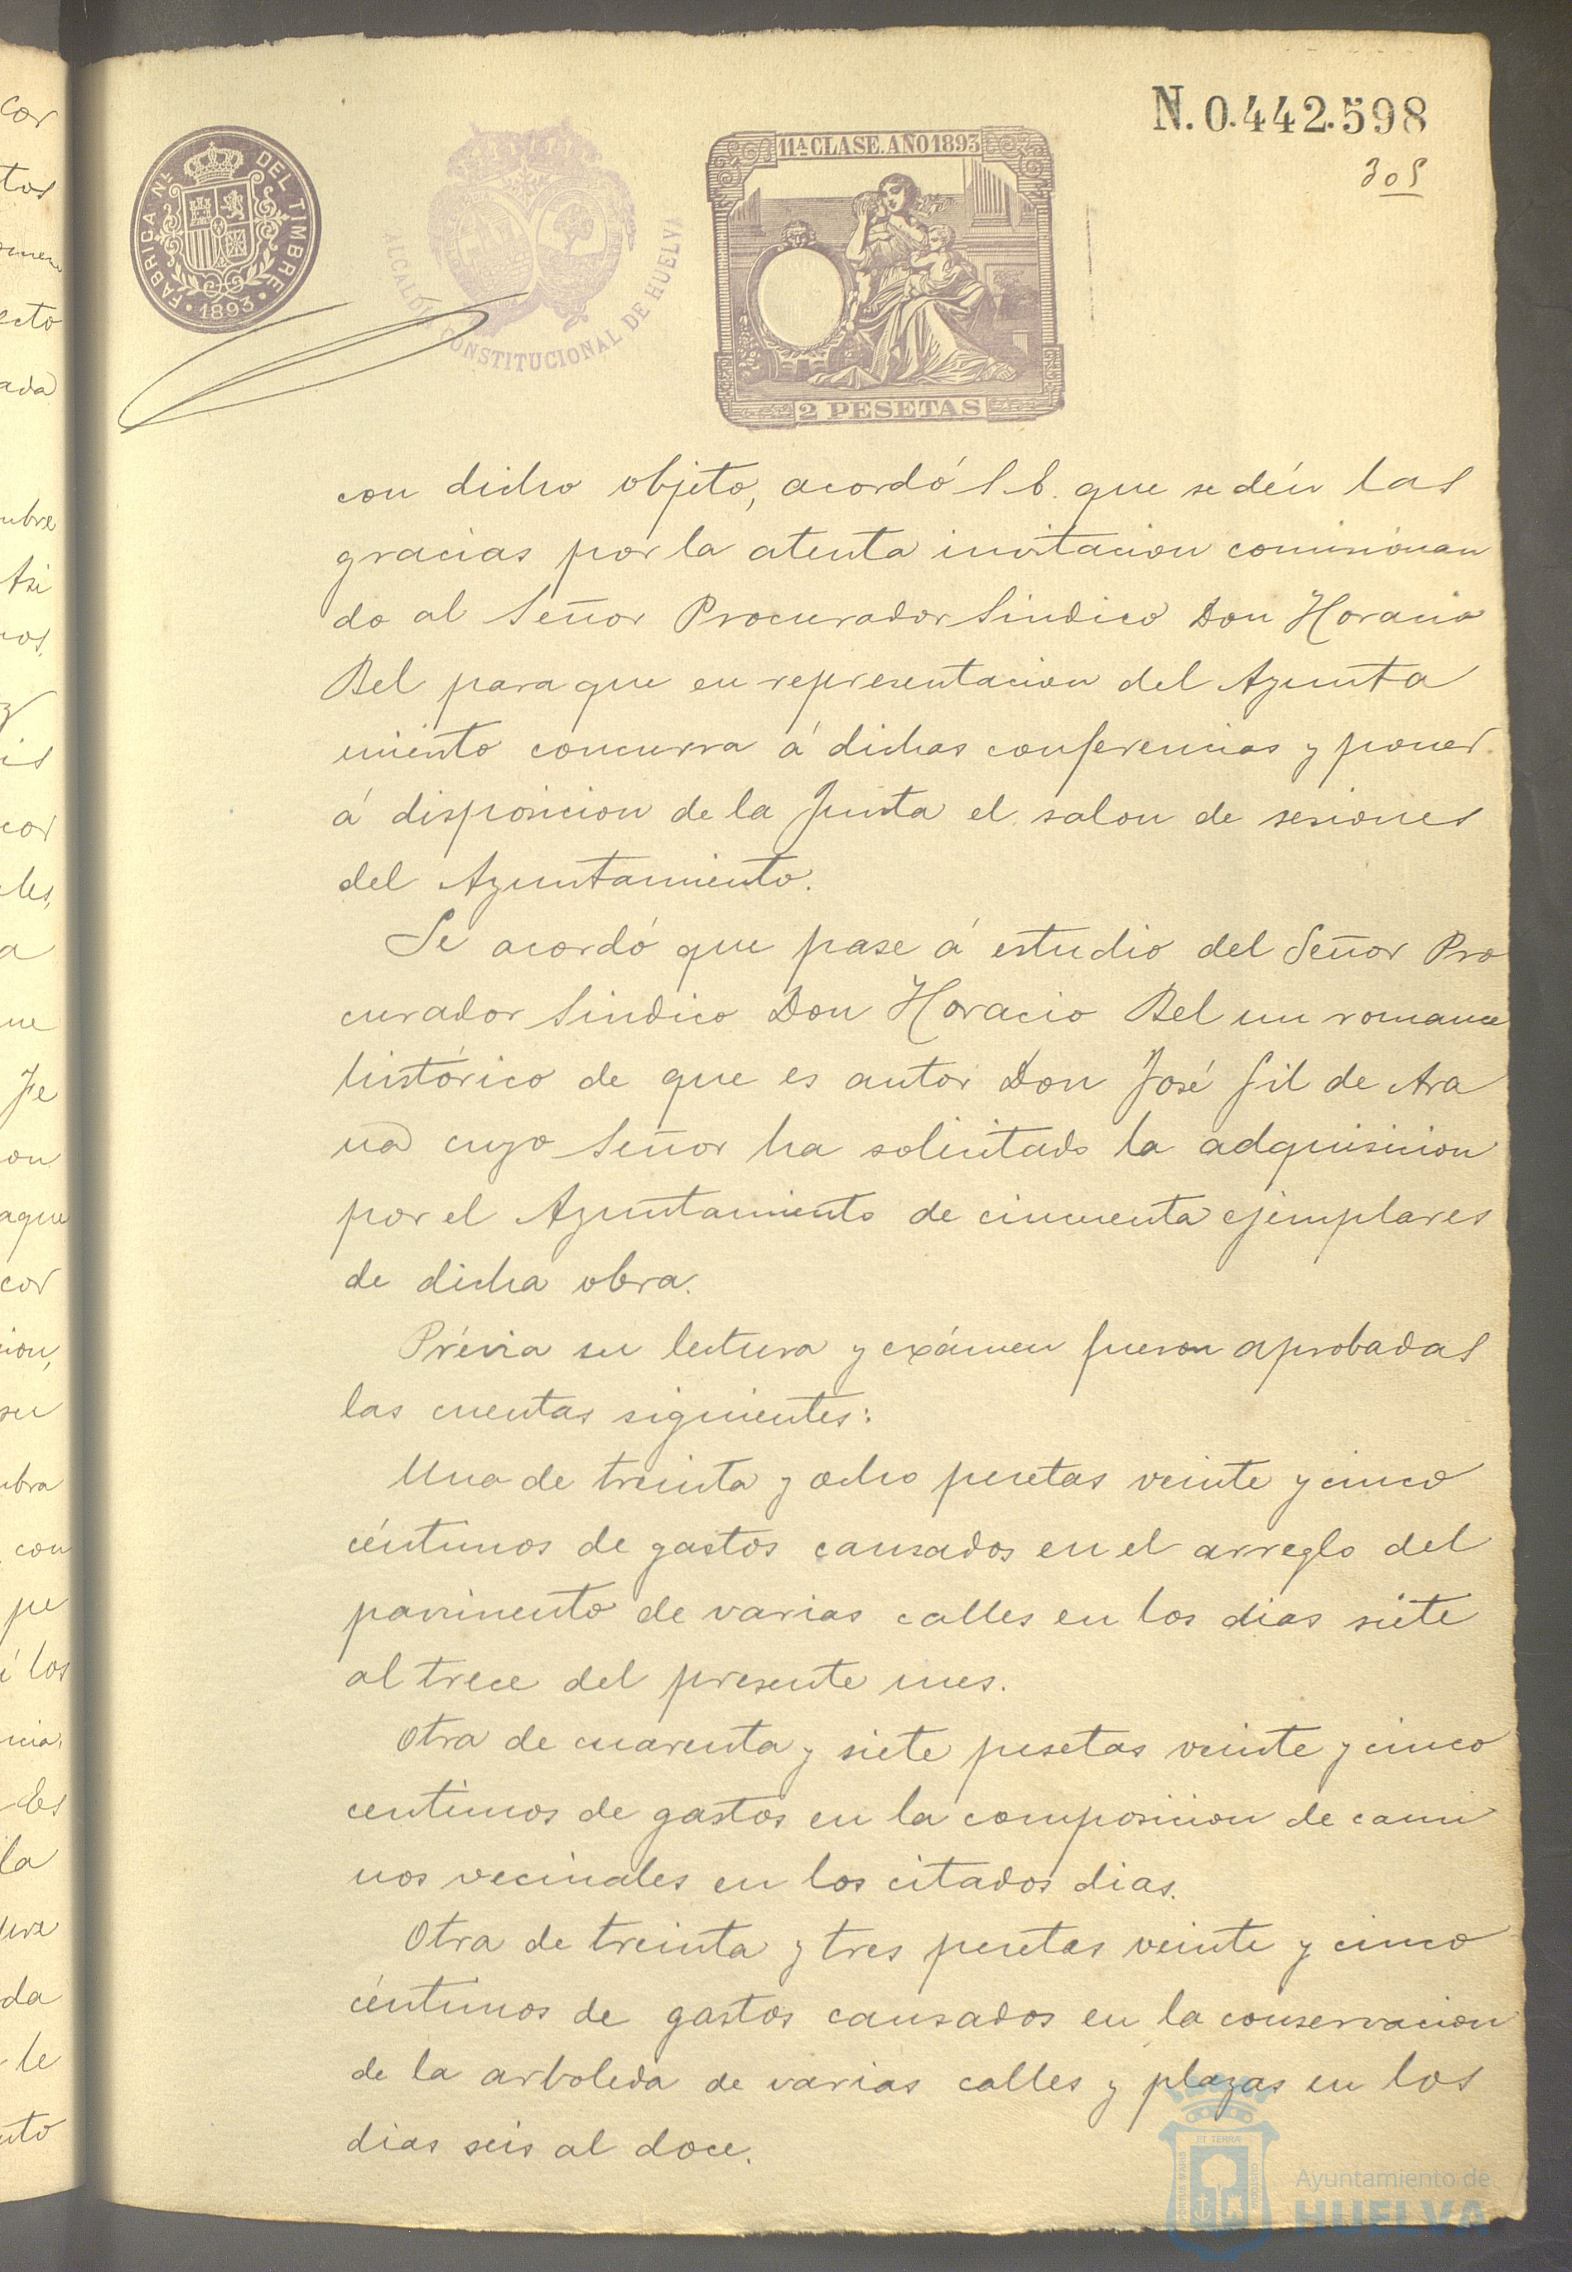 N. 0.442.598
305
FABRICA NL. DEL TIMBRE
1893
ALCALDÍA CONSTITUCIONAL DE HUELVA
11ª CLASE. AÑO 1893
2 PESETAS
con dicho objeto, acordó S. E. que se dén las
gracias por la atenta invitacion comisionan
do al Señor Procurador Sindico Don Horacio
Bel para que en representacion del Ayunta
miento concurra á dichas conferencias y poner
á disposicion de la Junta el salon de sesiones
del Ayuntamiento.
Se acordó que pase á estudio del Señor Pro
curador Sindico Don Horacio Bel un romance
histórico de que es autor Don José Gil de Ara
na cuyo Señor ha solicitado la adquisicion
por el Ayuntamiento de cincuenta ejemplares
de dicha obra.
Prévia su lectura y exámen fueron aprobadas
las cuentas siguientes:
Una de treinta y ocho pesetas veinte y cinco
céntimos de gastos causados en el arreglo del
pavimento de varias calles en los dias siete
al trece del presente mes.
Otra de cuarenta y siete pesetas veinte y cinco
centimos de gastos en la composicion de cami
nos vecinales en los citados dias.
Otra de treinta y tres pesetas veinte y cinco
céntimos de gastos causados en la conservacion
de la arboleda de varias calles y plazas en los
dias seis al doce.
Ayuntamiento de
HUELVA